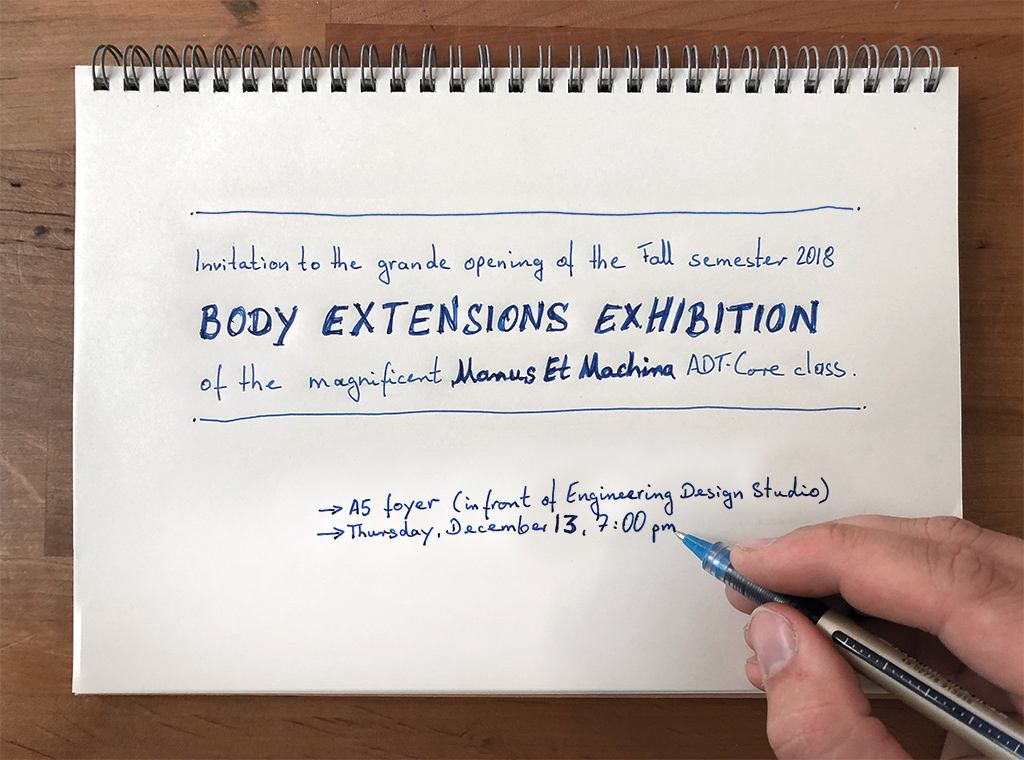 Invitation to the grande opening of the Fall semester 2018
BODY EXTENSIONS EXHIBITION
of the magnificent Manus Et Machina ADT-Core class.
→ A5 foyer (in front of Engineering Design Studio)
→ Thursday, December 13, 7:00 pm